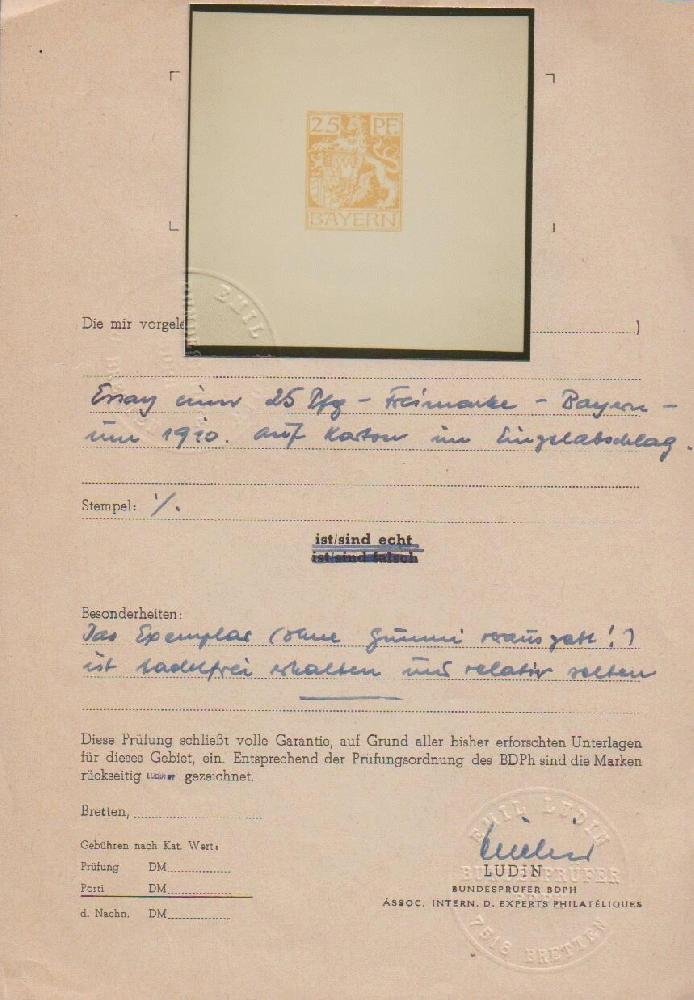 25 PF
BAYERN
EMIL
Die mir vorgele )
Essay einer 25 Pfg - Freimarke - Bayern -
um 1910. auf Karton im Einzelabschlag.
Stempel: ·/.
ist/sind echt
ist/sind falsch
Besonderheiten:
Das Exemplar (ohne Gummi verausgabt!)
ist tadelfrei erhalten und relativ selten
Diese Prüfung schließt volle Garantie, auf Grund aller bisher erforschten Unterlagen
für dieses Gebiet, ein. Entsprechend der Prüfungsordnung des BDPh sind die Marken
rückseitig gezeichnet.
Bretten,
Gebühren nach Kat. Wert:
Prüfung DM
Porti DM
d. Nachn. DM
EMIL LUDIN
BUNDESPRÜFER
BDPH
7518 BRETTEN
LUDIN
BUNDESPRÜFER BDPH
ASSOC. INTERN. D. EXPERTS PHILATÉLIQUES